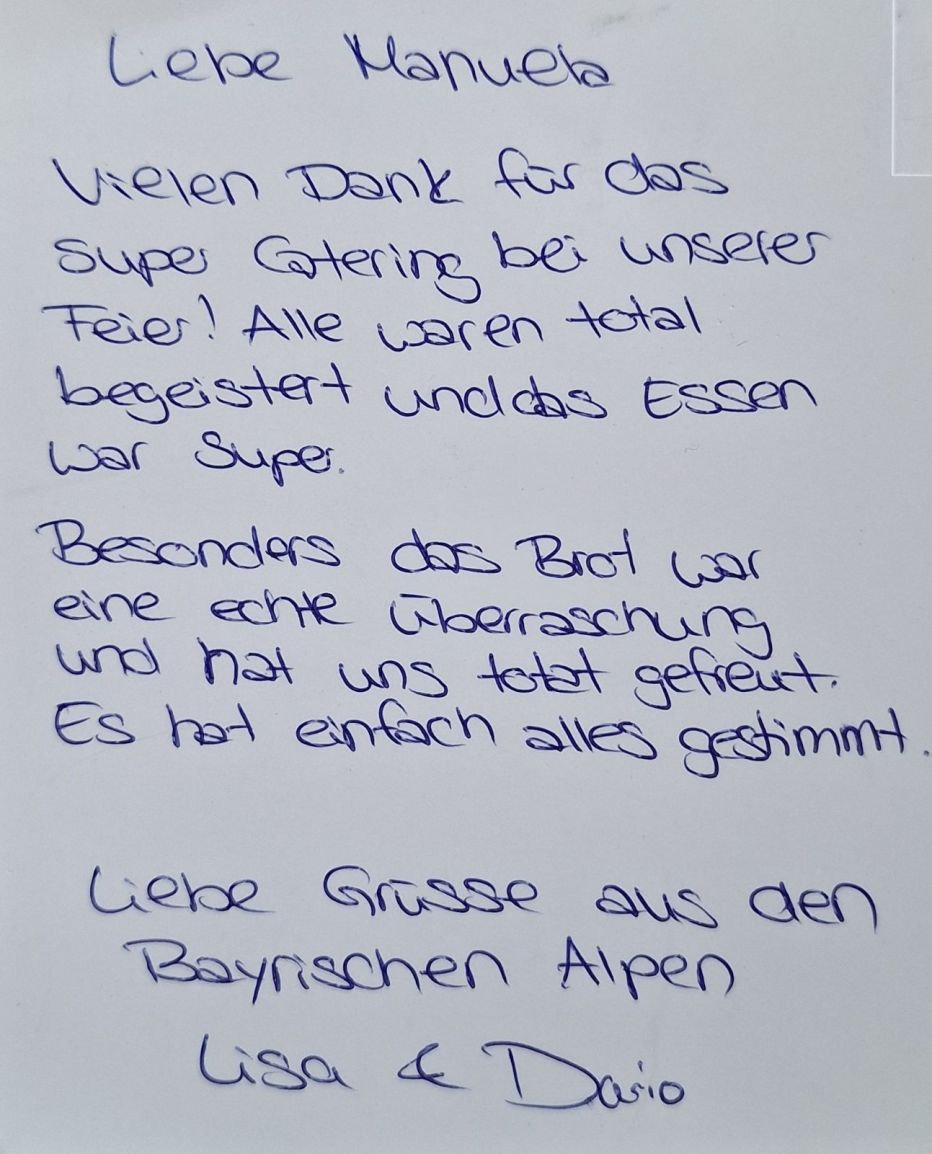 Liebe Manuela
Vielen Dank für das
Super Catering bei unserer
Feier! Alle waren total
begeistert und das Essen
war Super.
Besonders das Brot war
eine echte Überraschung
und hat uns total gefreut.
Es hat einfach alles gestimmt.
Liebe Grüsse aus den
Bayrischen Alpen
Lisa & Dario